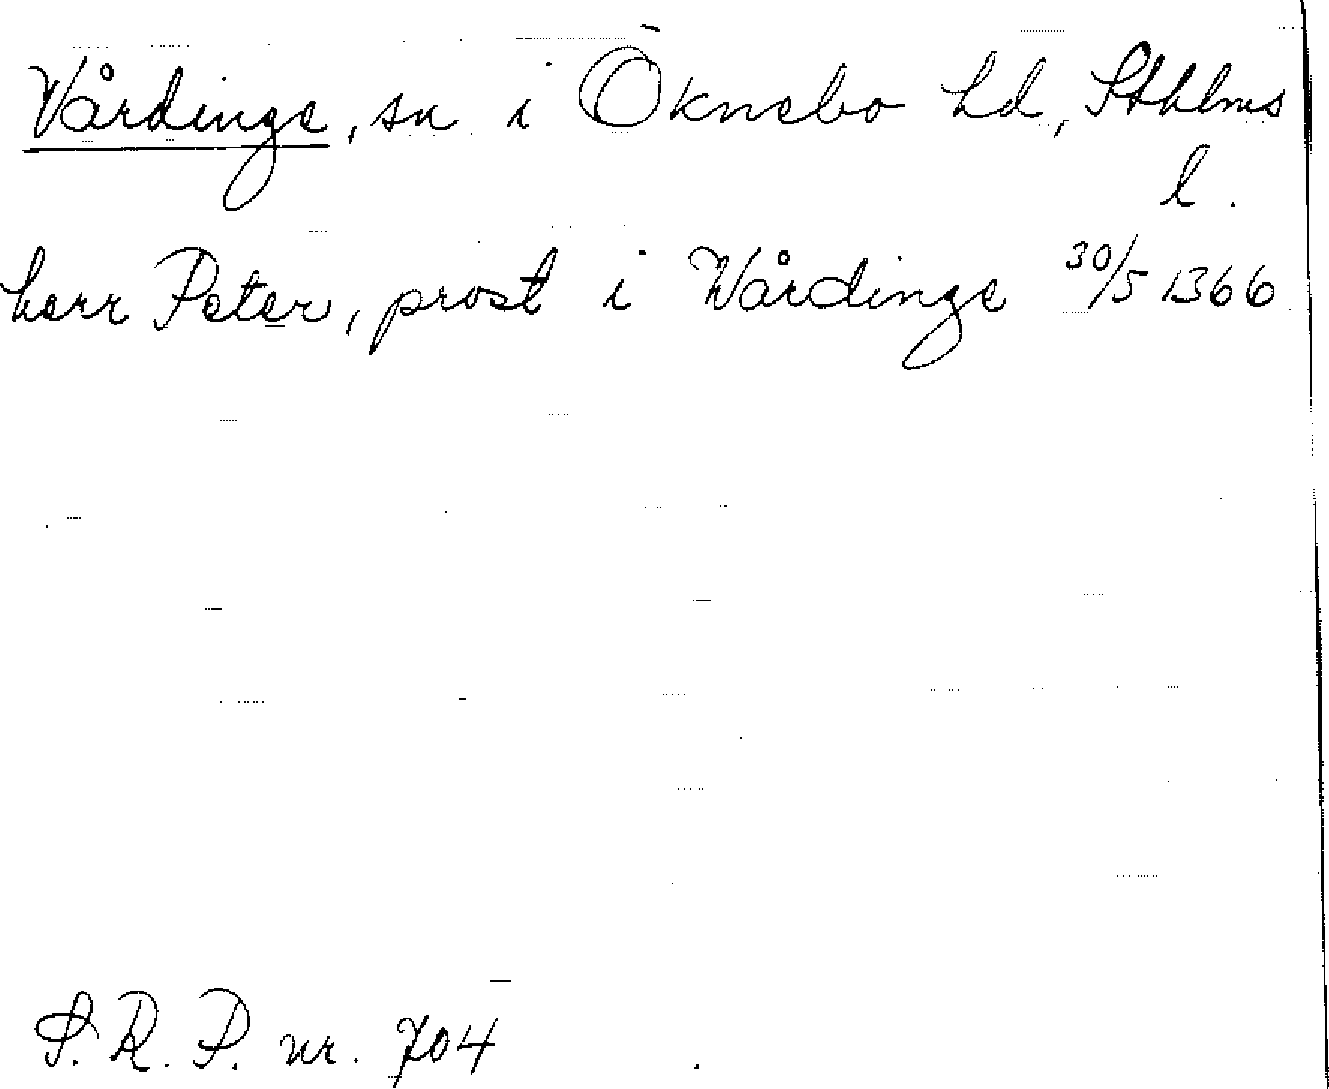 Vårdinge, sn i Öknebo hd, Sthlms
l.
herr Peter, prost i Vårdinge 30/5 1366
S.R.P. nr. 704